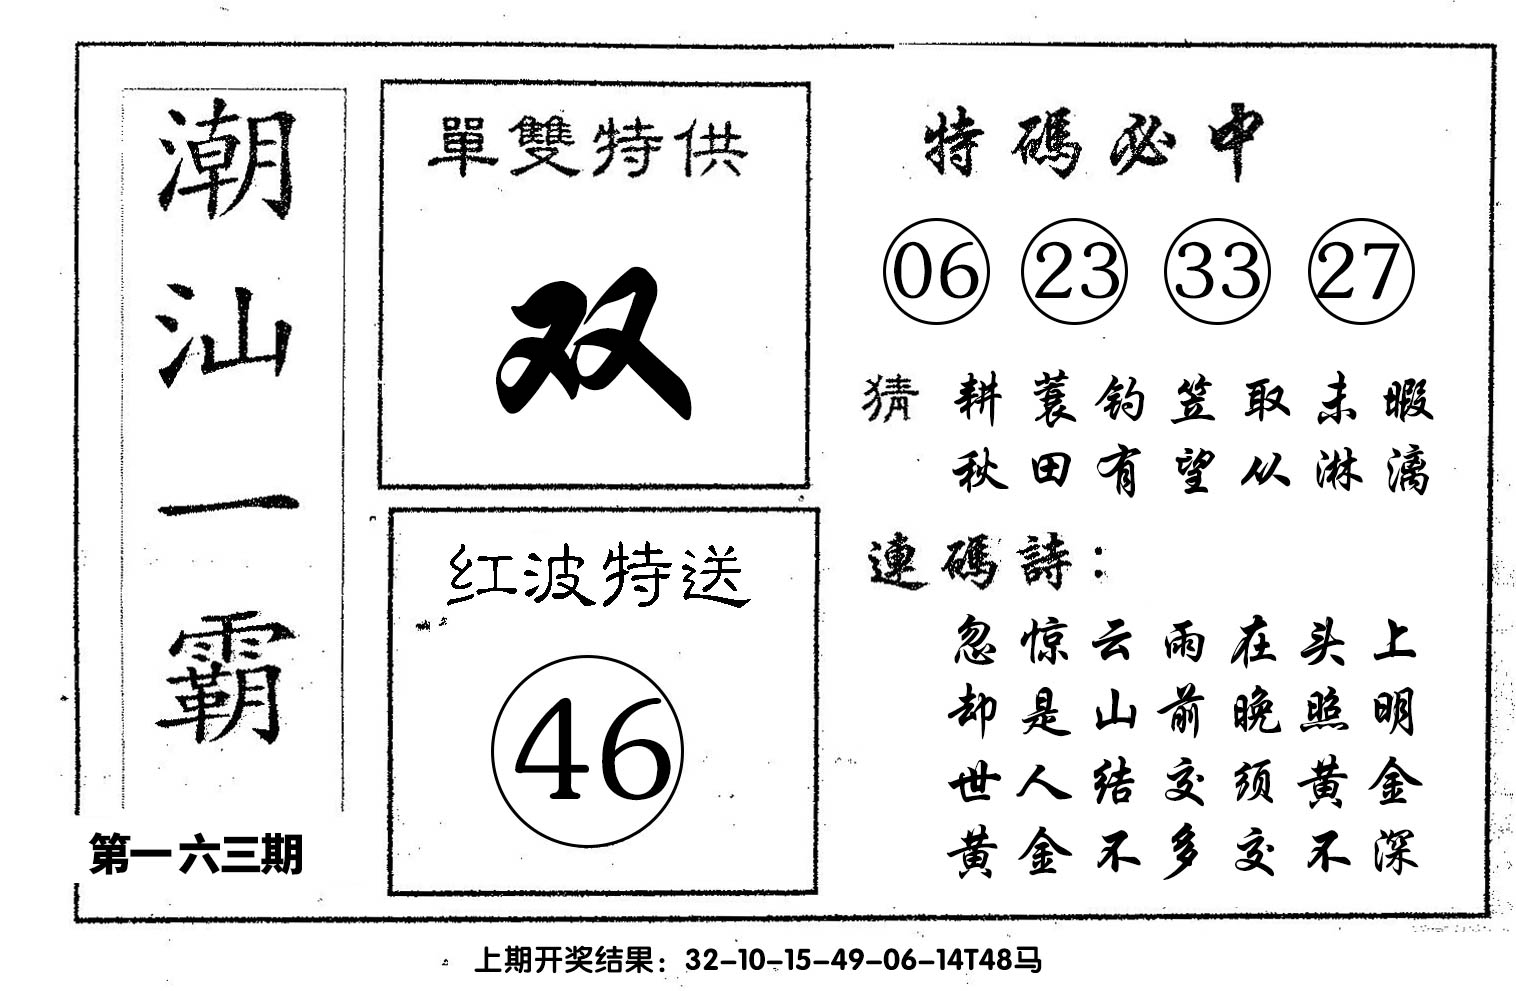 潮汕一霸
第一六三期
單雙特供
双
红波特送
46
特碼必中
06 23 33 27
猜 耕蓑钓笠取未暇
秋田有望从淋漓
連碼詩：
忽惊云雨在头上
却是山前晚照明
世人结交须黄金
黄金不多交不深
上期开奖结果：32-10-15-49-06-14T48马